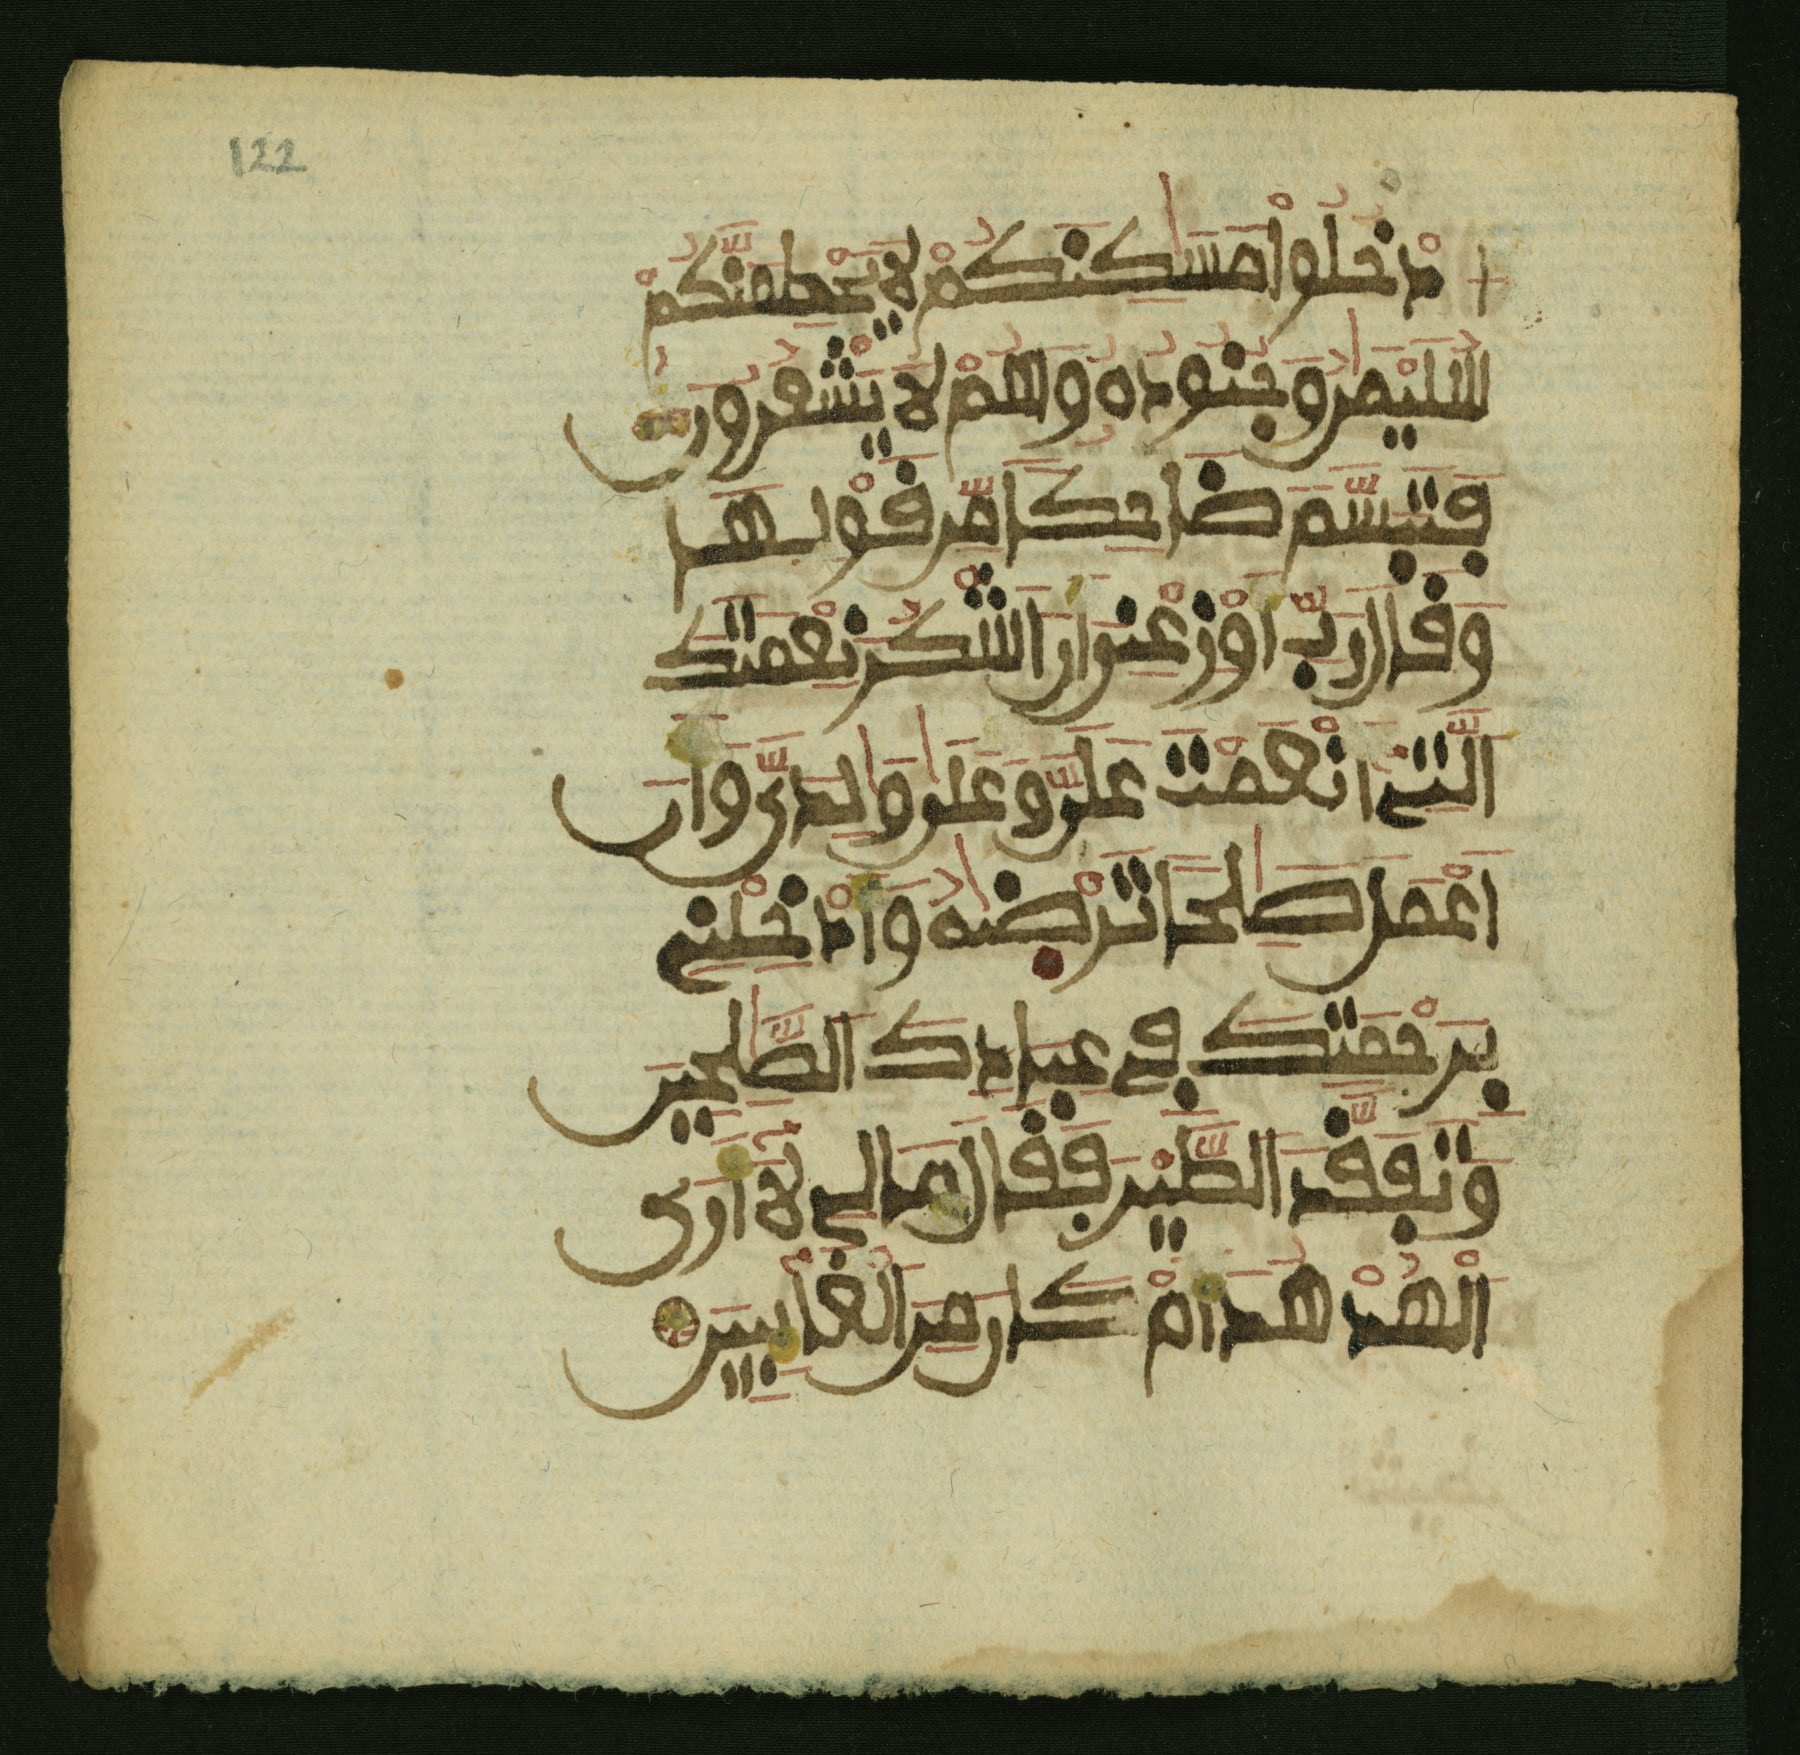 122
ادْخُلُوا مَسَٰكِنَكُمْ لَا يَحْطِمَنَّكُمْ
سُلَيْمَٰنُ وَجُنُودُهُ وَهُمْ لَا يَشْعُرُونَ
فَتَبَسَّمَ ضَاحِكًا مِّن قَوْلِهَا
وَقَالَ رَبِّ أَوْزِعْنِي أَنْ أَشْكُرَ نِعْمَتَكَ
الَّتِي أَنْعَمْتَ عَلَيَّ وَعَلَىٰ وَٰلِدَيَّ وَأَنْ
أَعْمَلَ صَٰلِحًا تَرْضَىٰهُ وَأَدْخِلْنِي
بِرَحْمَتِكَ فِي عِبَادِكَ الصَّٰلِحِينَ
وَتَفَقَّدَ الطَّيْرَ فَقَالَ مَالِي لَا أَرَى
الْهُدْهُدَ أَمْ كَانَ مِنَ الْغَائِبِينَ